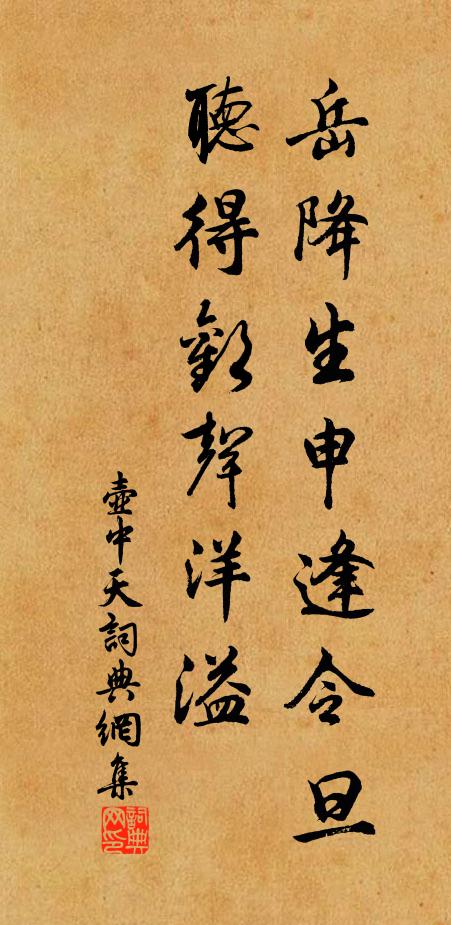 岳降生申逢令旦
聽得歡聲洋溢
壺中天詞典網集
詞典网印